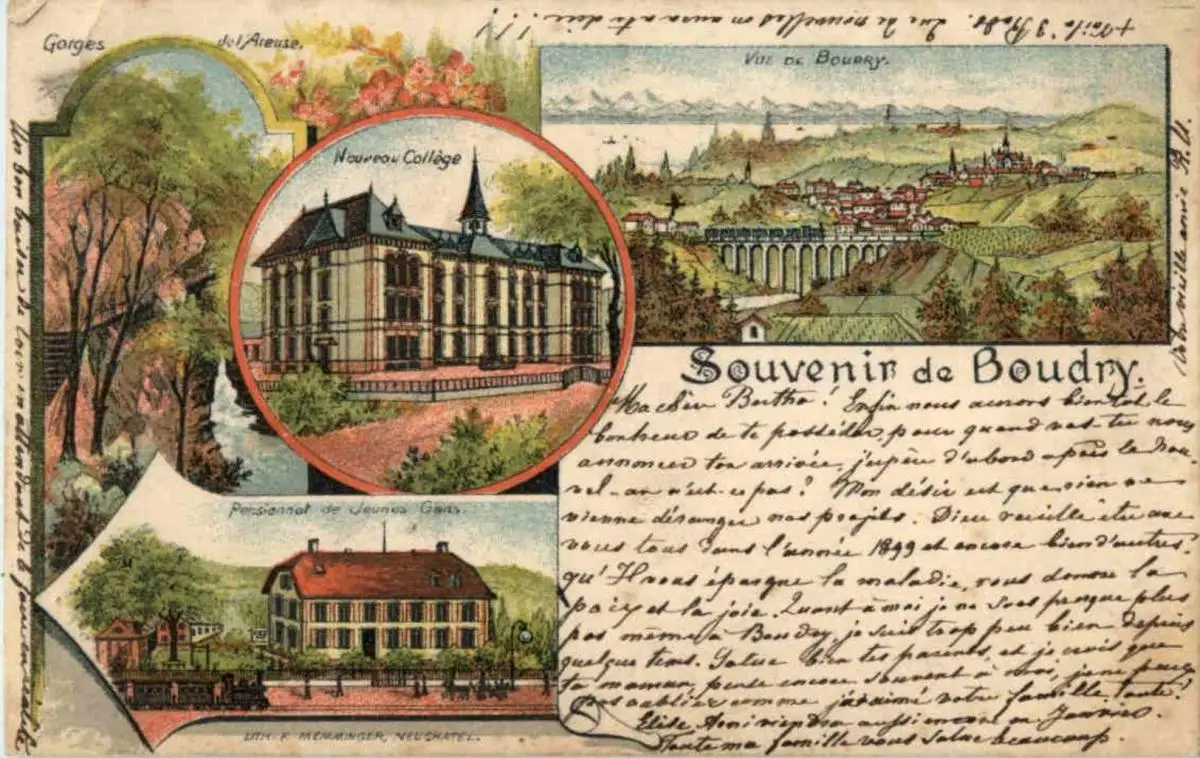 Gorges de l'Areuse.
Nouveau Collège
Vue de Boudry.
Pensionnat de Jeunes Gens.
Lith. F. Memminger, Neuchatel.
Souvenir de Boudry.
Ma chère Bertha! Enfin nous aurons bientôt le
bonheur de te posséder, pour quand vas tu nous
annoncer ton arrivée, j'espère d'abord après le nou-
vel-an n'est-ce pas? Mon désir est que rien ne
vienne déranger nos projets. Dieu veuille être avec
vous tous dans l'année 1899 et encore bien d'autres,
qu'Il vous épargne la maladie, vous donne la
paix et la joie. Quant à moi je ne sors presque plus
pas même à Boudry, je suis trop peu bien depuis
quelque tems. Salue bien tes parents, et je crois que
ta maman pense encore souvent à moi, je ne puis
pas oublier comme j'ai aimé votre famille toute!
Elise Ami viendra aussi encore en Janvier.
Toute ma famille vous salue beaucoup.
Ta vieille amie
de nouvelles on aura à te dire!!!